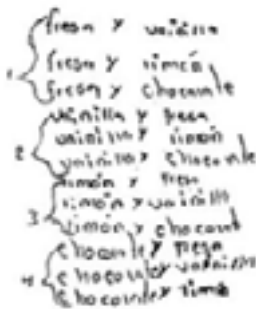 1 fresa y vainilla
fresa y limón
fresa y chocolate
2 vainilla y fresa
vainilla y limón
vainilla y chocolate
3 limón y fresa
limón y vainilla
limón y chocolat
4 chocolate y fresa
chocolate y vainilla
chocolate y limón